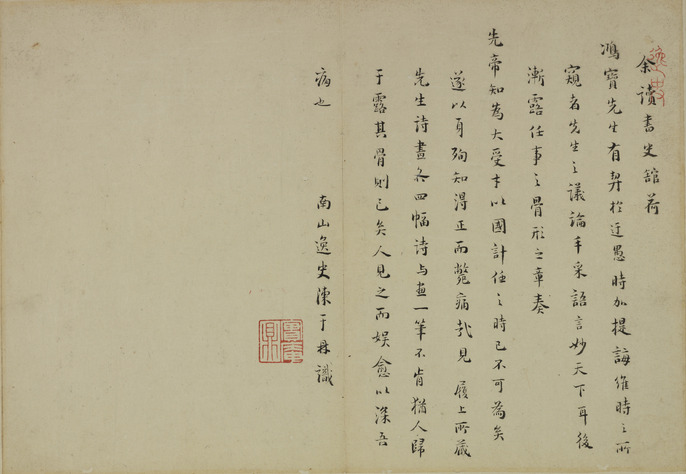 余讀書史館荷
鴻寶先生有契於迂愚時加提誨維時之所
窺者先生之議論丰采語言妙天下耳後
漸露任事之骨形之章奏
先帝知為大受才以國計任之時已不可為矣
遂以身殉知得正而斃痛哉見履上所藏
先生詩畫各四幅詩与画一筆不肯猶人歸
于露其骨則已矣人見之而娛愈以深吾
病也
南山逸史陳于鼎識